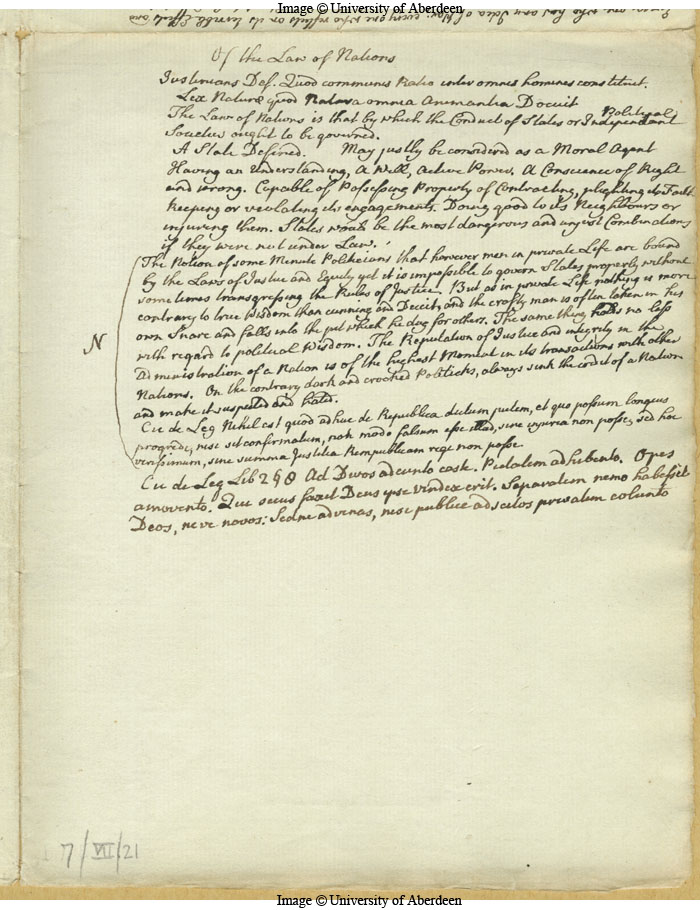 Image © University of Aberdeen
Of the Law of Nations
Justinians Def. Quod communis Ratio inter omnes homines constituit.
Lex Naturæ quod Natura omnia Animantia Docuit
The Law of Nations is that by which the Conduct of States or Independant Political
Societies ought to be governed.
A State Defined. May justly be considered as a Moral Agent
Having an Understanding, a Will, Active Power, A Conscience of Right
and wrong. Capable of Possessing Property of Contracting, plighting its Faith
keeping or violating its engagements. Doing good to its Neighbours or
injuring them. States woud be the most dangerous and unjust Combinations
if they were not under Law.
The Notion of some Minute Politicians that however men in private Life are bound
by the Laws of Justice and Equity yet it is impossible to govern States properly without
some times transgressing the Rules of Justice. But as in private Life nothing is more
contrary to true Wisdom than cunning and Deceit, and the crafty man is often taken in his
own Snare and falls into the pit which he dug for others. The same thing holds no less
N
with regard to political Wisdom. The Reputation of Justice and integrity in the
Administration of a Nation is of the highest Moment in its transactions with other
Nations. On the contrary dark and crooked Politicks, always sink the credit of a Nation
and make it suspected and hated.
Cic de Leg Nihil est quod adhuc de Republica dictum putem, et quo possum longius
progredi, nisi sit confirmatum, non modo falsum esse illud, sine injuria non posse, sed hoc
verissimum, sine summa Justitia Rempublicam regi non posse
Cic de Leg Lib 2 § 8 Ad Divos adeunto caste. Pietatem adhibento. Opes
amovento. Qui secus faxit Deus ipse vindex erit. Separatim nemo habessit
Deos, neve novos: Sedne advenas, nisi publice adscitos privatim colunto
7/VII/21
Image © University of Aberdeen